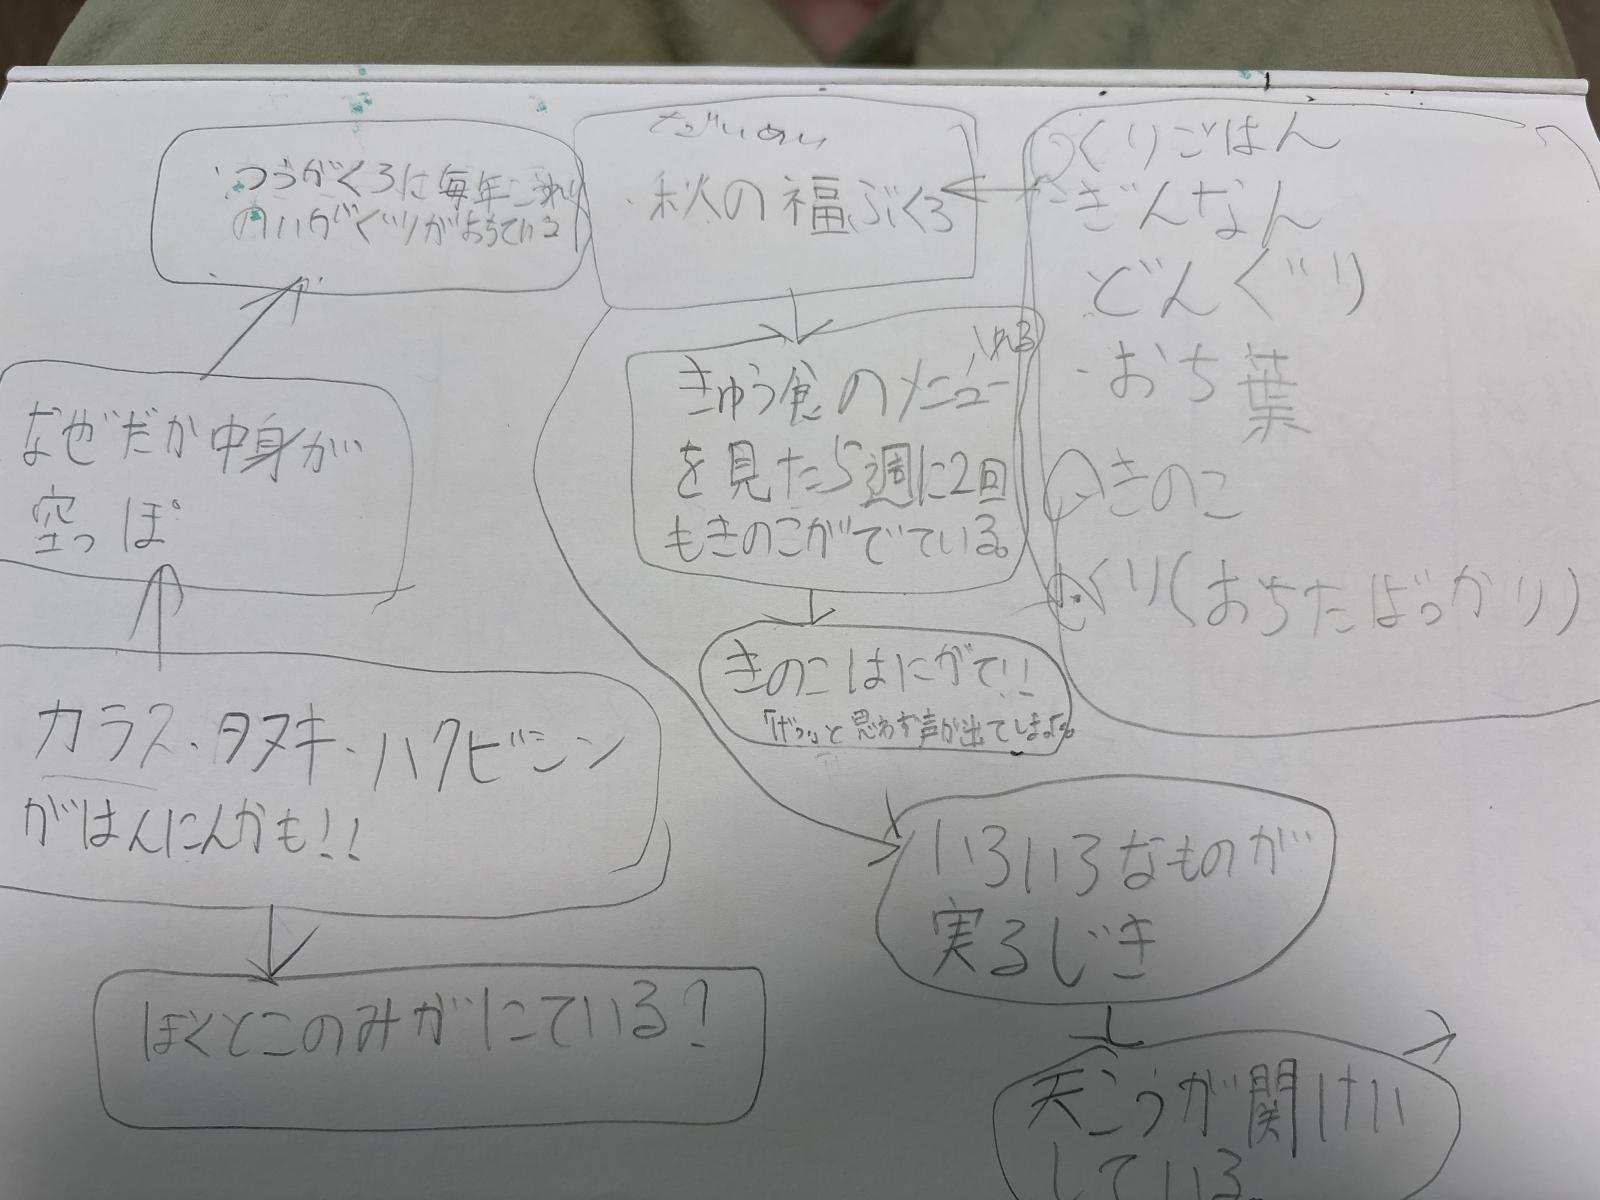 だいめい
・秋の福ぶくろ
・つうがくろに毎年
のいがぐりがおちている
なぜだか中身が
空っぽ
カラス・タヌキ・ハクビシン
がはんにんかも!!
ぼくとこのみがにている?
きゅう食のメニュー
を見たら週に2回
もきのこがでている。
きのこはにがて!!
「げっ」と思わず声が出てしまう。
いろいろなものが
実るじき
天こうが関けい
している。
くりごはん
ぎんなん
どんぐり
・おち葉
きのこ
くり(おちたばっかり)